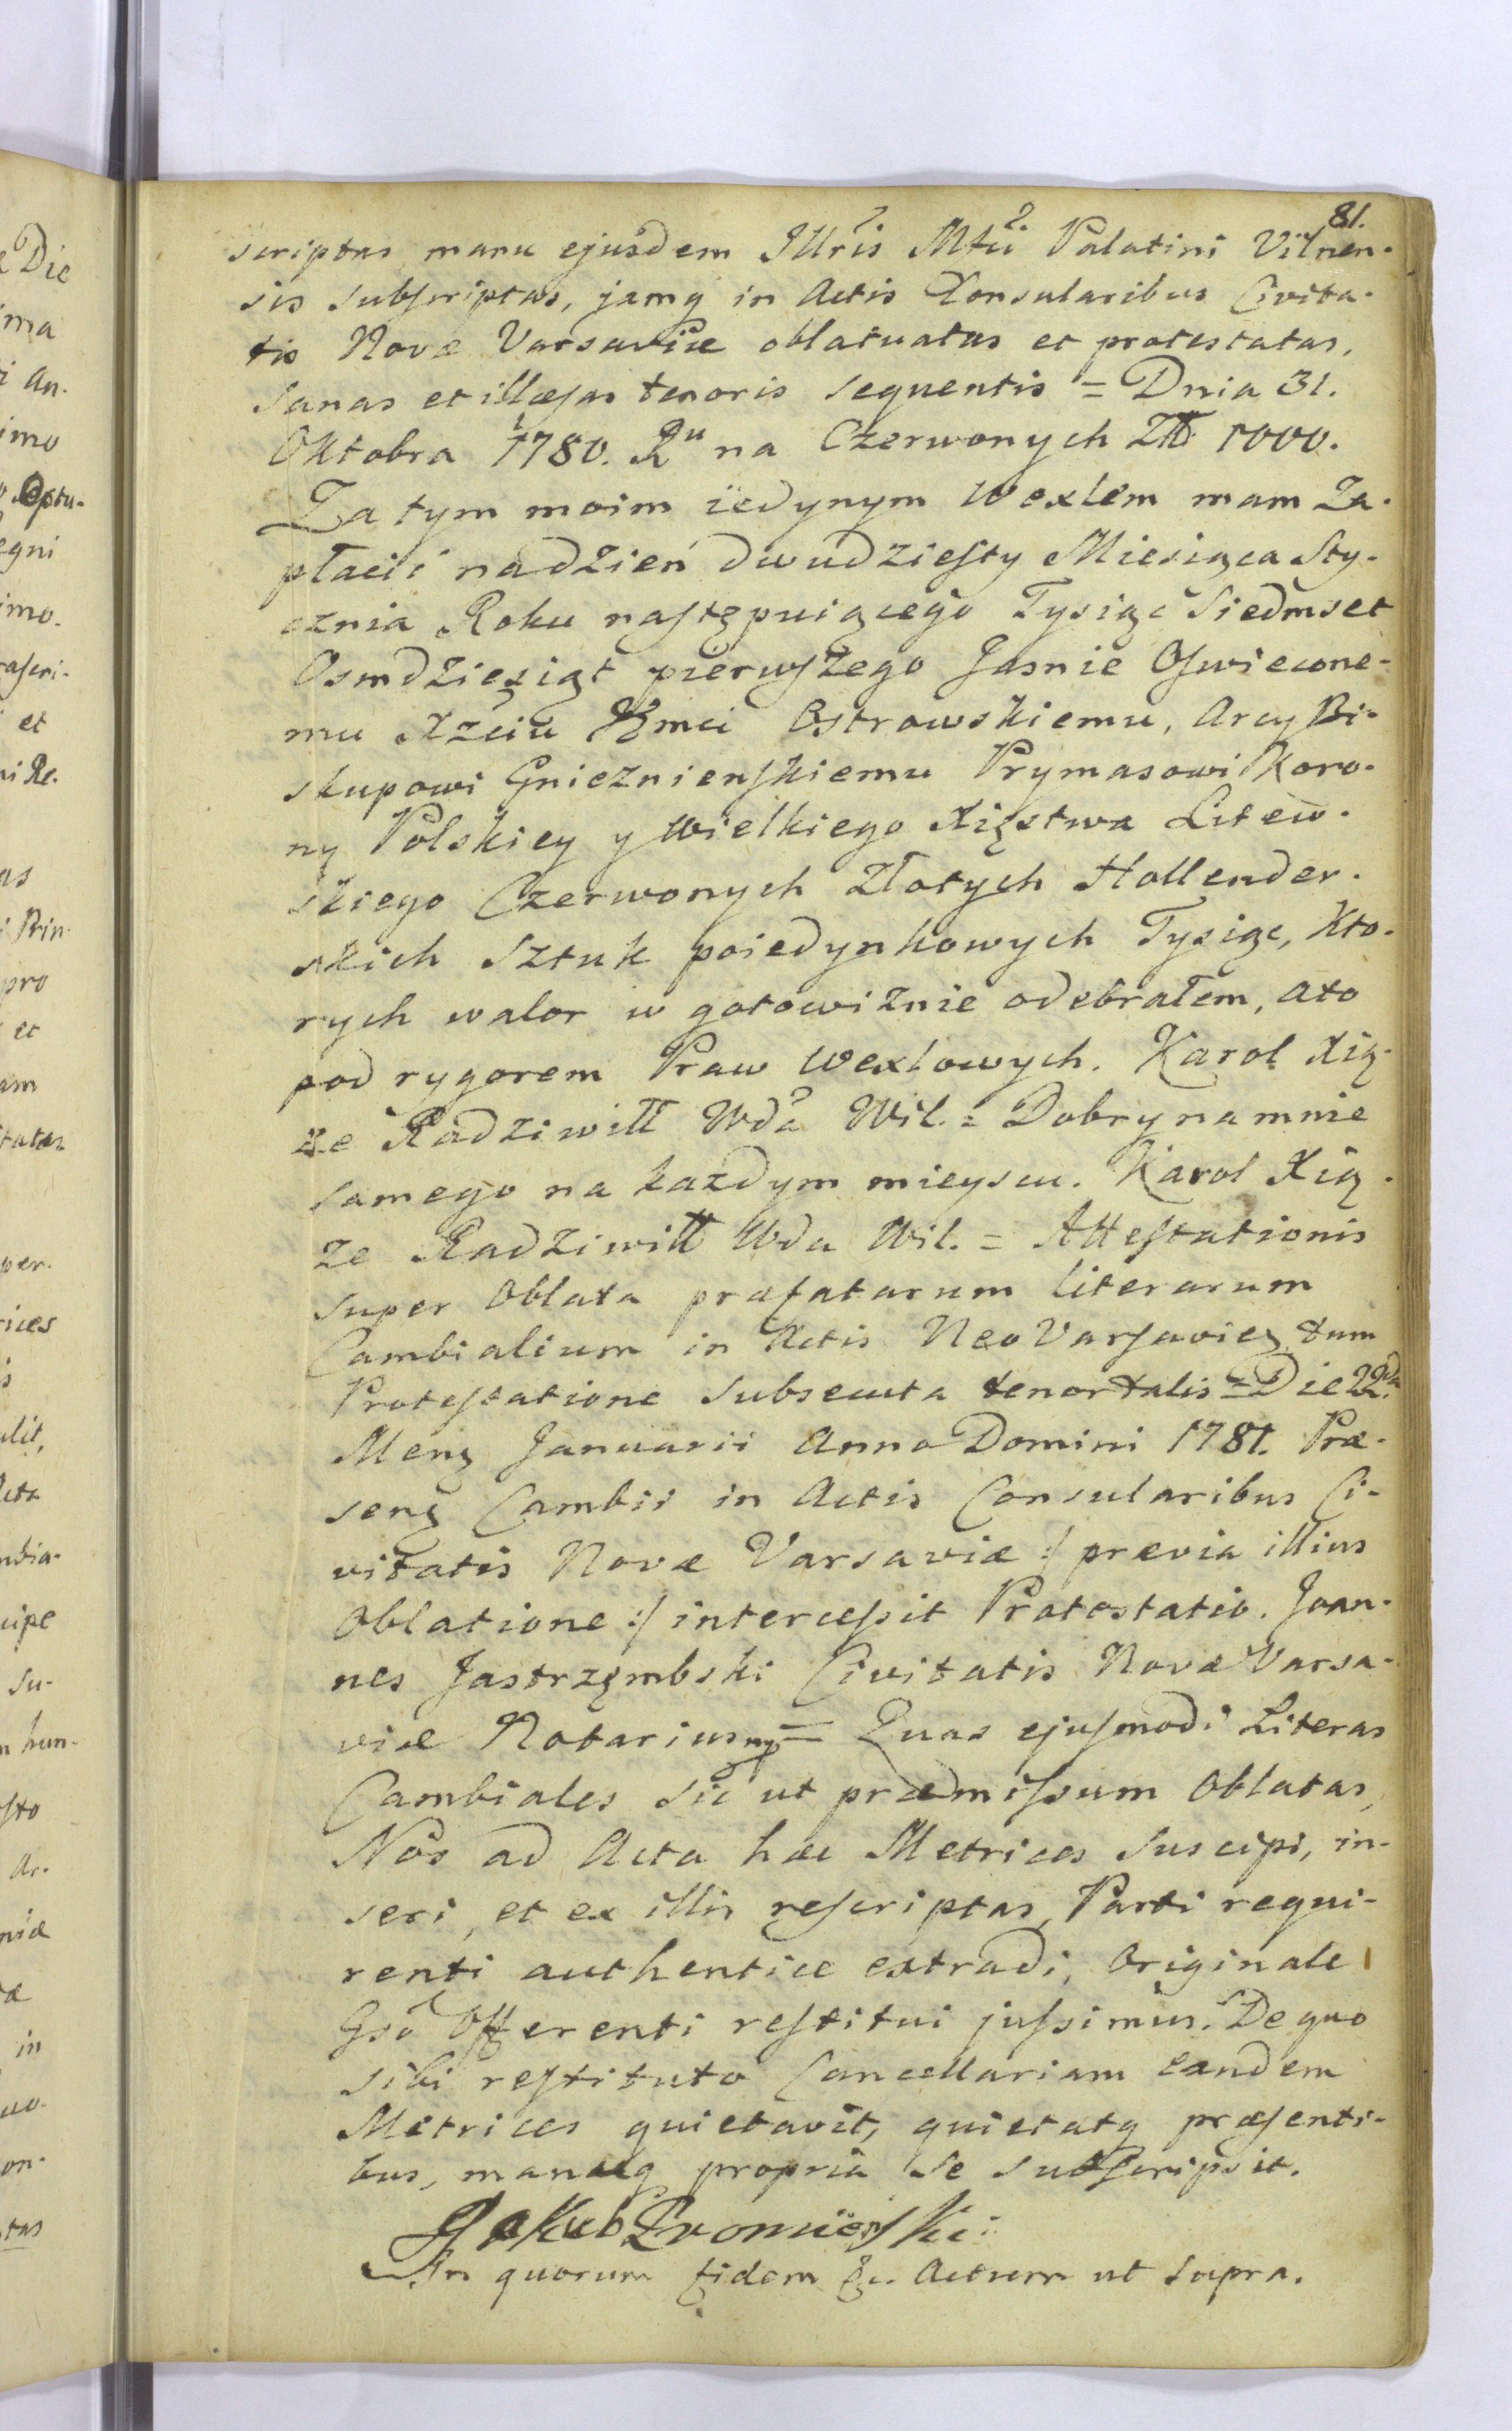 81.
scriptas manu ejusdem Illris Mtci Palatini Vilnen-
sis subscriptas, jamq in Actis Consularibus Civita-
tis Novæ Varsaviæ oblatuatas et protestatas,
sanas et illæsas tenoris sequentis = Dnia 31.
Oktobra 1780. Ru na Czerwonych Złł 1000.
Za tym moim iedynym Wexlem mam Za-
płacić na dzień dwudziesty Miesiąca Sty-
cznia Roku następuiącego Tysiąc Siedmset
Osmdziesiąt pierwszego Jasnie Oswiecone-
mu Xzciu Jmci Ostrowskiemu, Arcy Bi-
skupowi Gnieznienskiemu Prymasowi Koro-
ny Polskiey y Wielkiego Xięstwa Litew-
skiego Czerwonych Złotych Hollender-
skich Sztuk poiedynkowych Tysiąc, Kto-
rych walor w gotowiznie odebrałem, ato
pod rygorem Praw Wexlowych. Karol Xią-
że Radziwiłł Wda Wil. = Dobry na mnie
samego na każdym mieyscu. Karol Xią-
że Radziwiłł Wda Wil. = Attestationis
super Oblata præfatarum literarum
Cambialium in Actis Neo Varsavien tum
Protestatione subsecuta tenor talis = Die 22da
Mens Januarii Anno Domini 1781. Præ-
sens Cambii in Actis Consularibus Ci-
vitatis Novæ Varsaviæ :/ prævia illius
Oblatione :/ intercessit Protestatio. Joan-
nes Jastrzęmbski Civitatis Novæ Varsa-
viæ Notarius mp = Quas ejusmodi Literas
Cambiales sic ut præmissum Oblatas,
Nos ad Acta hæc Metrices suscipi, in-
seri, et ex illis rescriptas, Parti requi-
renti authentice extradi, Originale
Gso Offerenti restitui jussimus. De quo
sibi restituto Cancellariam eandem
Metrices quietavit, quietatq præsenti-
bus, manuq propria se subscripsit.
Jakub
In quorum fidem &c. Actum ut supra.